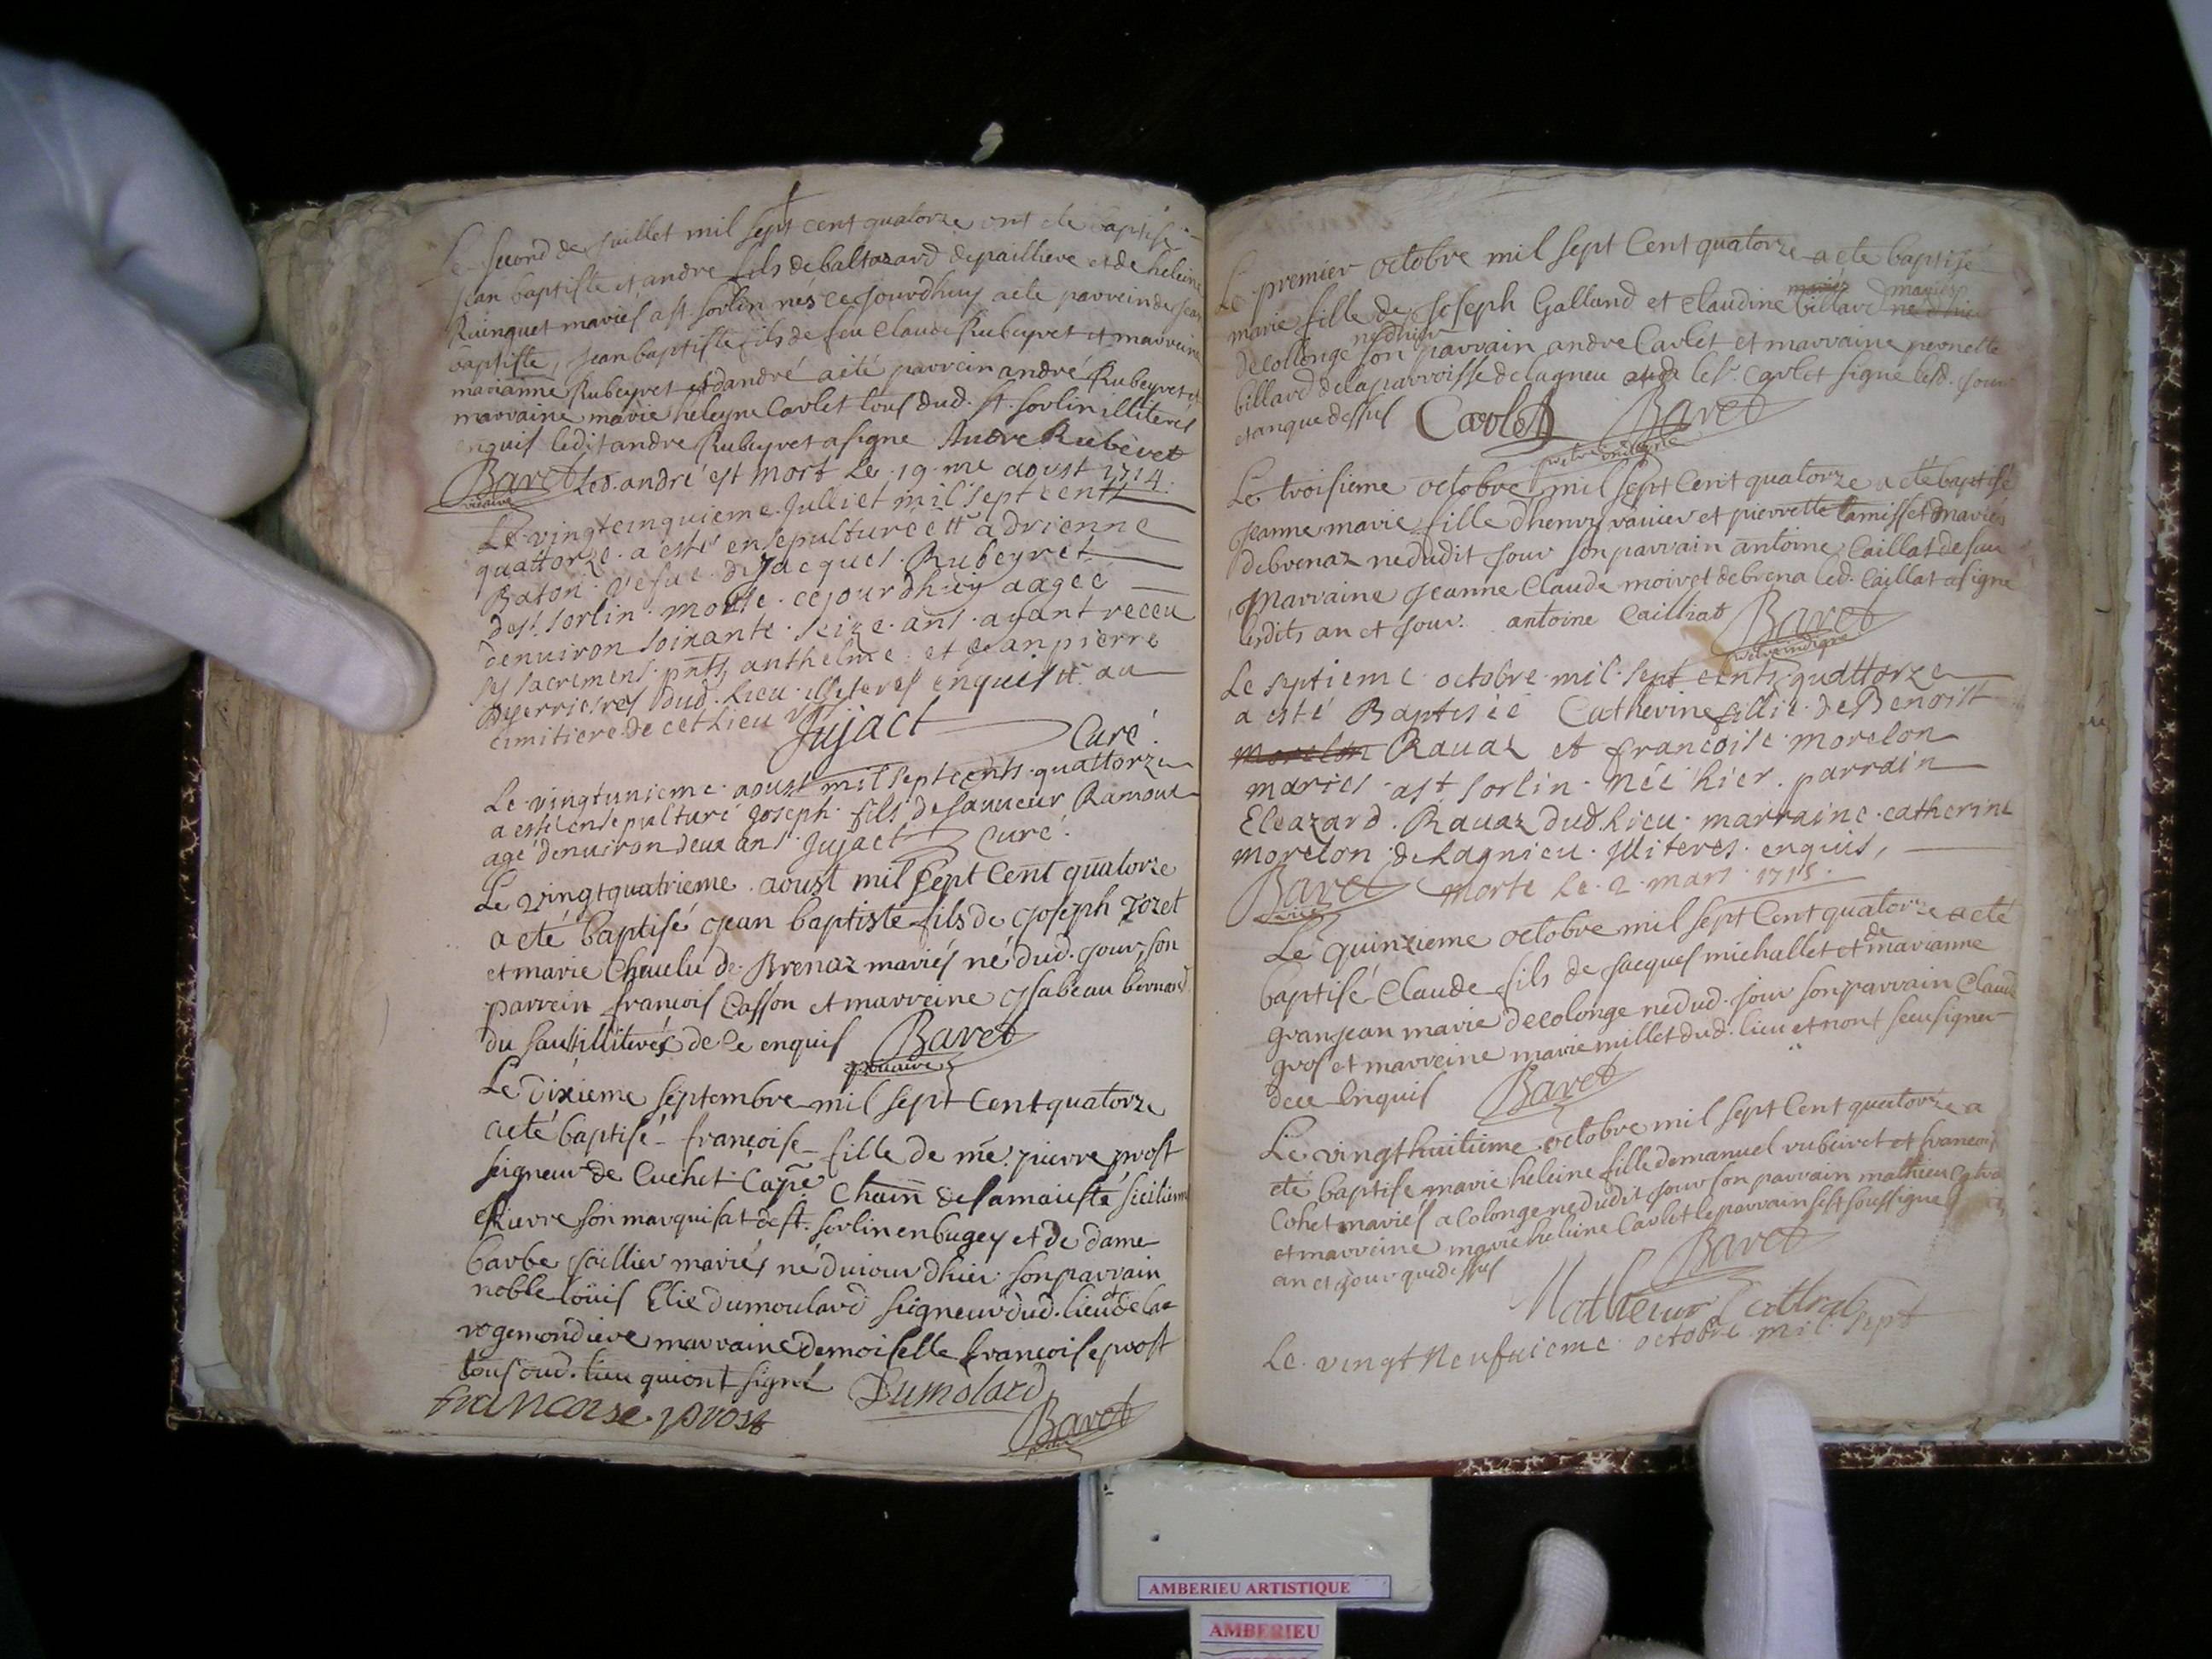 Le second de Juillet mil sept cent quatorze ont ete baptisé
Jean baptiste et andre fils de baltazard depailliere et de heleine
Ruinquet mariés a st. sorlin nés ce Jourdhuy aété parrein de Jean
baptiste, Jean baptiste fils de feu Claude Rubeyret et marreine
marianne Rubeyret et dandré aété parrein andré Rubeyret et
marraine marie heleyne Carlet tous dud. st. sorlin illiterés
enquis ledit andre Rubeyret a signe Andre Rubevet
Baret Led. andré est mort Le 19 me aoust 1714.
vicaire
Le vingtcinquieme Julliet mil sept cents
quattorze a esté ensepulturée tt adrienne
Baton vefue de Jacques Rubeyret
de st. sorlin morte cejourdhuy aagée
denuiron soixante seize ans ayant receu
ses sacremens pnts, anthelme et Jean pierre
dud. Lieu illiteres enquis tt au
cimitiere de cet lieu
Jujact Curé
Le vingtunieme aoust mil sept cents quattorze
a esté ensepulturé Joseph fils de sauueur Ramoux
agé denuiron deux ans Jujact Curé.
Le vingtquatrieme aoust mil sept Cent quatorze
a eté baptisé Jean baptiste fils de Joseph Jozet
et marie Chaulu de Brenaz mariés né dud. Jour, son
parrein francois Casson et marreine Isabeau bernard
du sault illiterés de Ce enquis Baret
vicaire
Le dixieme septembre mil sept Cent quatorze
aeté baptisé françoise fille de me. pierre prost
seigneur de Cuchet Cape Chatn de sa maiesté sicilienne
Riuvre son marquisat de st. sorlin en bugey et de dame
barbe Jaillier mariés né du iour dhier son parrain
noble loüis Elie dumoulard seigneur dud. lieu et de la
vogemondiere marraine demoiselle francoise prost
tous dud. lieu qui ont signé Dumolard
francoise prost Baret
Le premier octobre mil sept Cent quatorze a ete baptisé
mariés
marie fille de Joseph Galland et Claudine billard
né dhier
de colonge son parrain andre Carlet et marraine pernette
billard de la parroisse de lagneu le sr. Carlet signe lesd. Jour
et an que dessus Carlet Baret
pretre indigne
Le troisieme octobre mil sept Cent quatorze a été baptisé
Jeanne marie fille dhenry ravier et pierrette tamisset mariés
de brenaz ne dudit Jour son parrain antoine Caillat de sau
marraine Jeanne Claude moiret de brena led. Caillat a signe
lesdits an et Jour. antoine Cailliat Baret
pretre indigne
Le septieme octobre mil sept cents quattorze
a esté Baptisée Catherine fillie de Benoist
morelon Rauaz et francoise morelon
mariés a st sorlin née hier parrain
Eleazard Rauaz dud. Lieu marraine catherine
morelon de Lagnieu Illiteres enquis,
Baret morte Le 2 mars 1715.
vicre
Le quinzieme octobre mil sept Cent quatorze a eté
de
baptisé Claude fils de Jacques michallet et marianne
granjean marie de colonge ne dud. Jour son parrain Claude
gros et marreine marie millet dud. lieu et nont sceu signer
de ce Enquis Baret
Le vingthuitieme octobre mil sept Cent quatorze a
eté baptisé marie heleine fille demanuel rubeiret et francois
Cohet mariés a Colonge ne dudit Jour son parrain mathieu Catra
et marreine marie heleine Carlet le parrain sest soussigne
an et jour que dessus Baret
Mathieur Cattral
Le vingt neufuieme octobre mil sept
AMBERIEU ARTISTIQUE
AMBERIEU